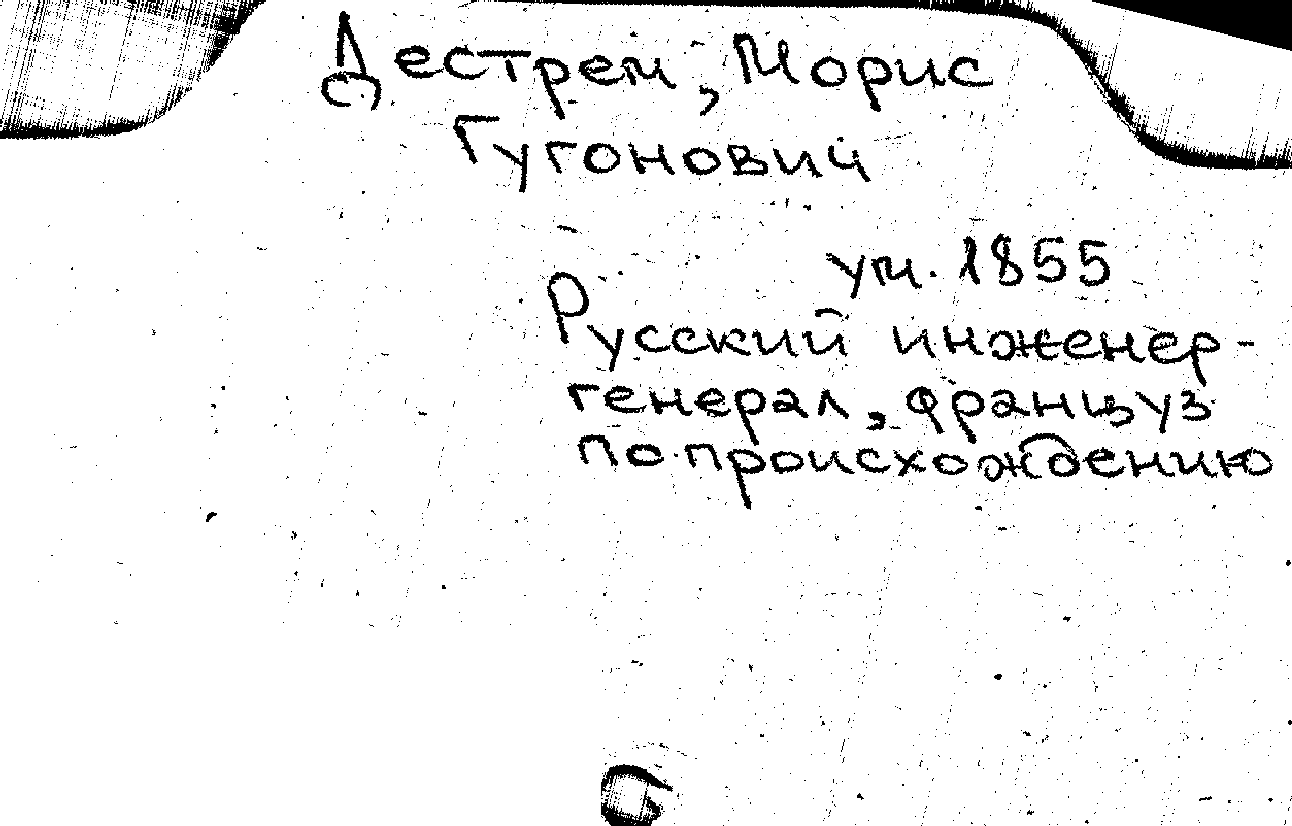 Дестрем, Морис
Гугонович
ум. 1855
Русский инженер-
генерал, француз
по происхождению